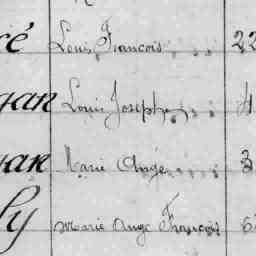 cé Louis François 22
gan Louis Joseph 4
gan Marie Ange 3
ly Marie Ange François 6